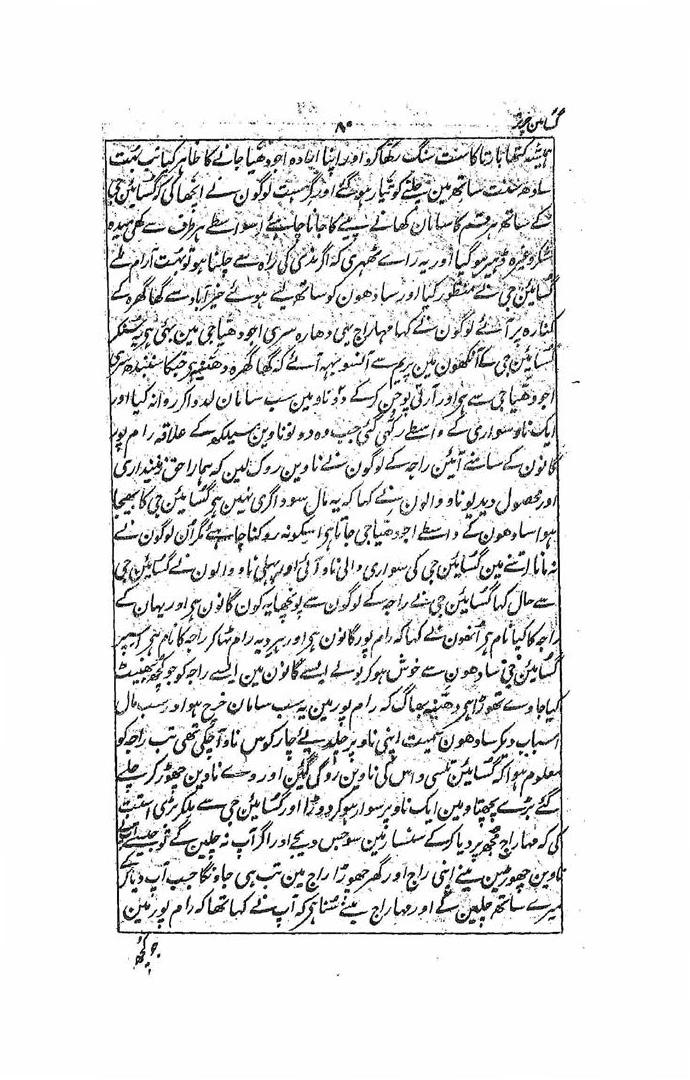 گسائین چرتر
۸۰
ہمیشہ کتھا بارتا کا ست سنگ رکھا کرو اور اپنا ارادہ اجودھیا جانے کا ظاہر کیا تب بہت
سادھ سنت ساتھ مین چلنے کو تیار ہو گئے اور گرہست لوگون نے اچھا کی کہ گسائین جی
کے ساتھ ہر قسم کا سامان کھانے پینے کا جانا چاہئے اسواسطے ہر طرف سے گھی میدہ
شکر وغیرہ ڈھیر ہو گیا اور یہ راے ٹھہری کہ اگر ندی کی راہ سے چلنا ہو تو بہت آرام ملے
گسائین جی نے منظور کیا اور سادھون کو ساتھ لیے ہوئے خیرآباد سے گھاگھرہ کے
کنارہ پر آئے لوگون نے کہا مہاراج یہی دھارہ سری اجودھیا جی مین بہتی ہے یہ سنکر
گسائین جی کے آنکھون مین پریم سے آنسو بہہ آئے کہ گھاگھرہ دھنیہ ہے جسکا سنبندھ سری
اجودھیا جی سے ہے اور آرتی پوجن کر کے دو ناو مین سب سامان لدوا کر روانہ کیا اور
ایک ناو سواری کے واسطے رکھی گئی جب وہ دونو ناوین سیلکھ کے علاقہ رام پور
گانون کے سامنے آئین راجہ کے لوگون نے ناوین روک لین کہ ہمارا حق زمینداری
اور محصول دیدیو ناو والون نے کہا کہ یہ مال سوداگری نہین ہے گسائین جی کا بھیجا
ہوا سادھون کے واسطے اجودھیا جی جاتا ہے اسکو نہ روکنا چاہئے مگر اُن لوگون نے
نہ مانا اتنے مین گسائین جی کی سواری والی ناو آئی اور پہلی ناو والون نے گسائین جی
سے حال کہا گسائین جی نے راجہ کے لوگون سے پونچھا یہ کون گانون ہے اور یہان کے
راجہ کا کیا نام ہے اُنھون نے کہا کہ رام پور گانون ہے اور ہردیہ رام ٹھاکر راجہ کا نام ہے اسپر
گسائین جی سادھون سے خوش ہو کر بولے ایسے گانون مین ایسے راجہ کو جو کچھ بھینٹ
کیا جاوے تھوڑا ہے دھنیہ بھاگ کہ رام پور مین یہ سب سامان خرچ ہوا اور سب مال
اسباب دیکر سادھون سمیت اپنی ناو پر چلدیئے چار کوس ناو آچکی تھی تب راجہ کو
معلوم ہوا کہ گسائین تلسی داس کی ناوین روکی گئین اور وے ناوین چھوڑ کر چلے
گئے بڑے پچھتاو مین ایک ناو پر سوار ہو کر دوڑا اور گسائین جی سے ملکر بڑی استت
کی کہ مہاراج مجھپر دیا کر کے سنسار مین سوجس دیجے اور اگر آپ نہ چلین گے تو جیسے آپ نے
ناوین چھوڑین مینے اپنی راج اور گھر چھوڑا راج مین تب ہی جاونگا جب آپ دیا کر
میرے ساتھ چلین گے اور مہاراج مینے سنا ہے کہ آپ نے کہا تھا کہ رام پور مین
جو کچھ